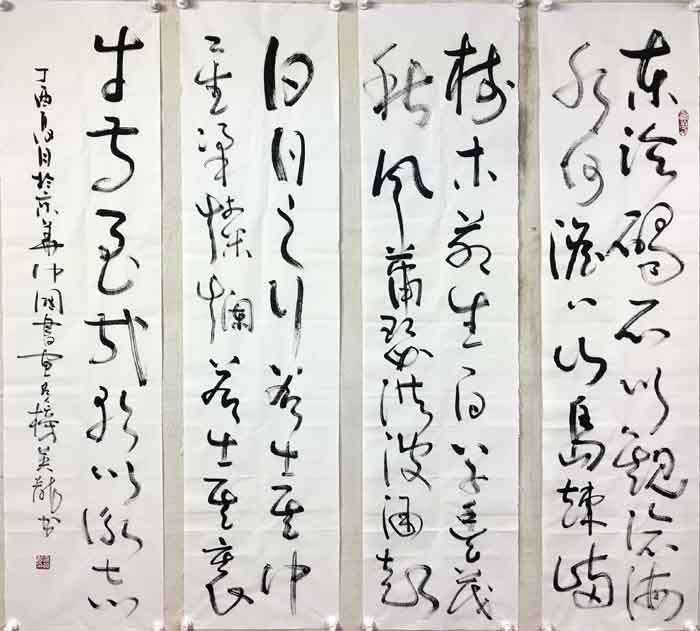 東臨碣石以觀滄海
水何澹澹山島竦峙
樹木叢生百草豐茂
秋風蕭瑟洪波涌起
日月之行若出其中
星漢燦爛若出其裏
幸甚至哉歌以詠志
丁酉夏月於京華中國書畫英龍書